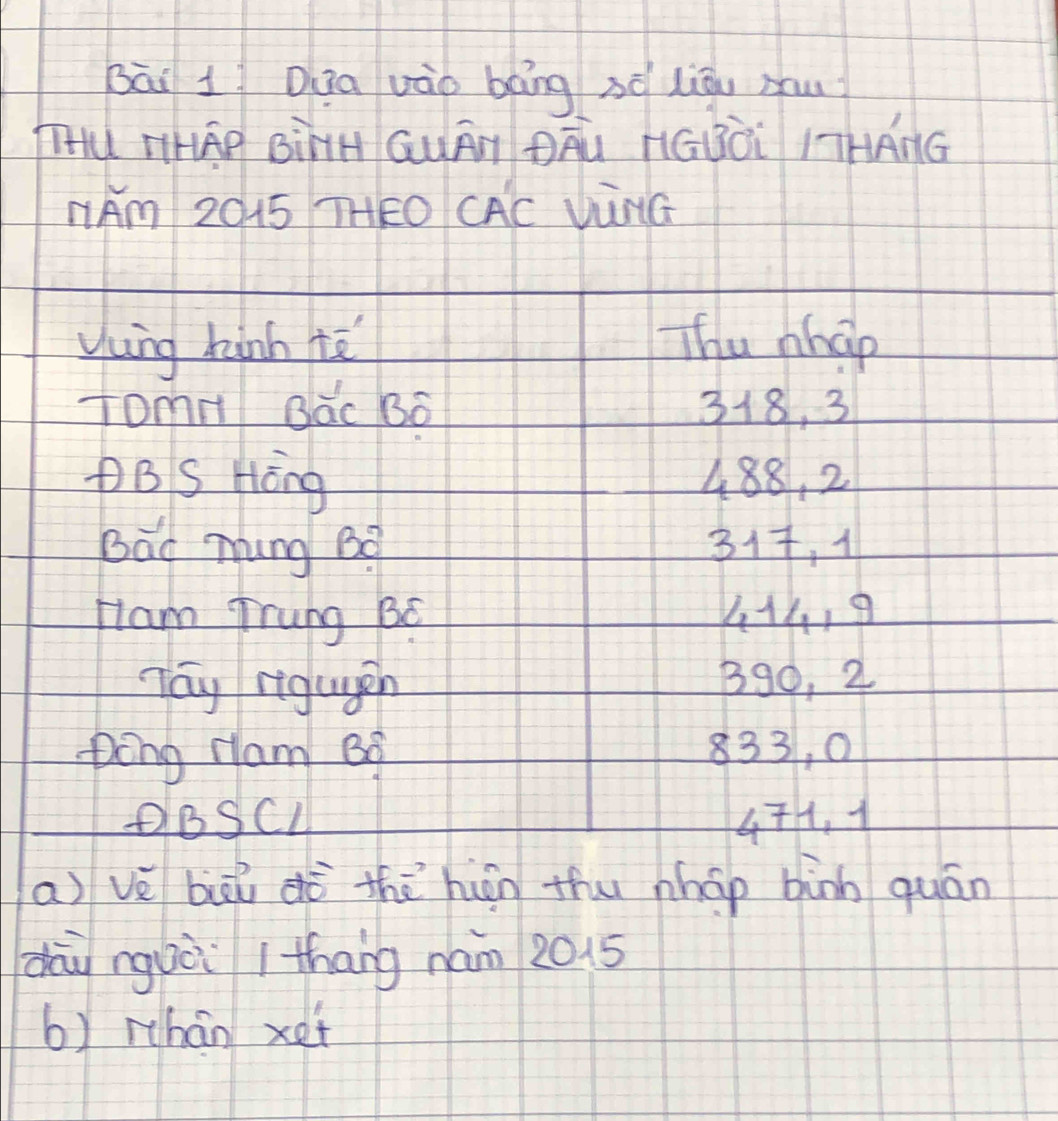 Bài 1: Dựa vào bảng số liệu sau:
THU NHẬP BÌNH QUÂN ĐẦU NGƯỜI /THÁNG
NĂM 2015 THEO CÁC VÙNG
Vùng kinh tế Thu nhập
TDMN Bắc Bộ 318,3
ĐBS Hồng 488,2
Bắc Trung Bộ 317,1
Nam Trung Bộ 414,9
Tây Nguyên 390,2
Đông Nam Bộ 833,0
ĐBSCL 471,1
a) Vẽ biểu đồ thể hiện thu nhập bình quân
đầu người / tháng năm 2015
b) Nhận xét